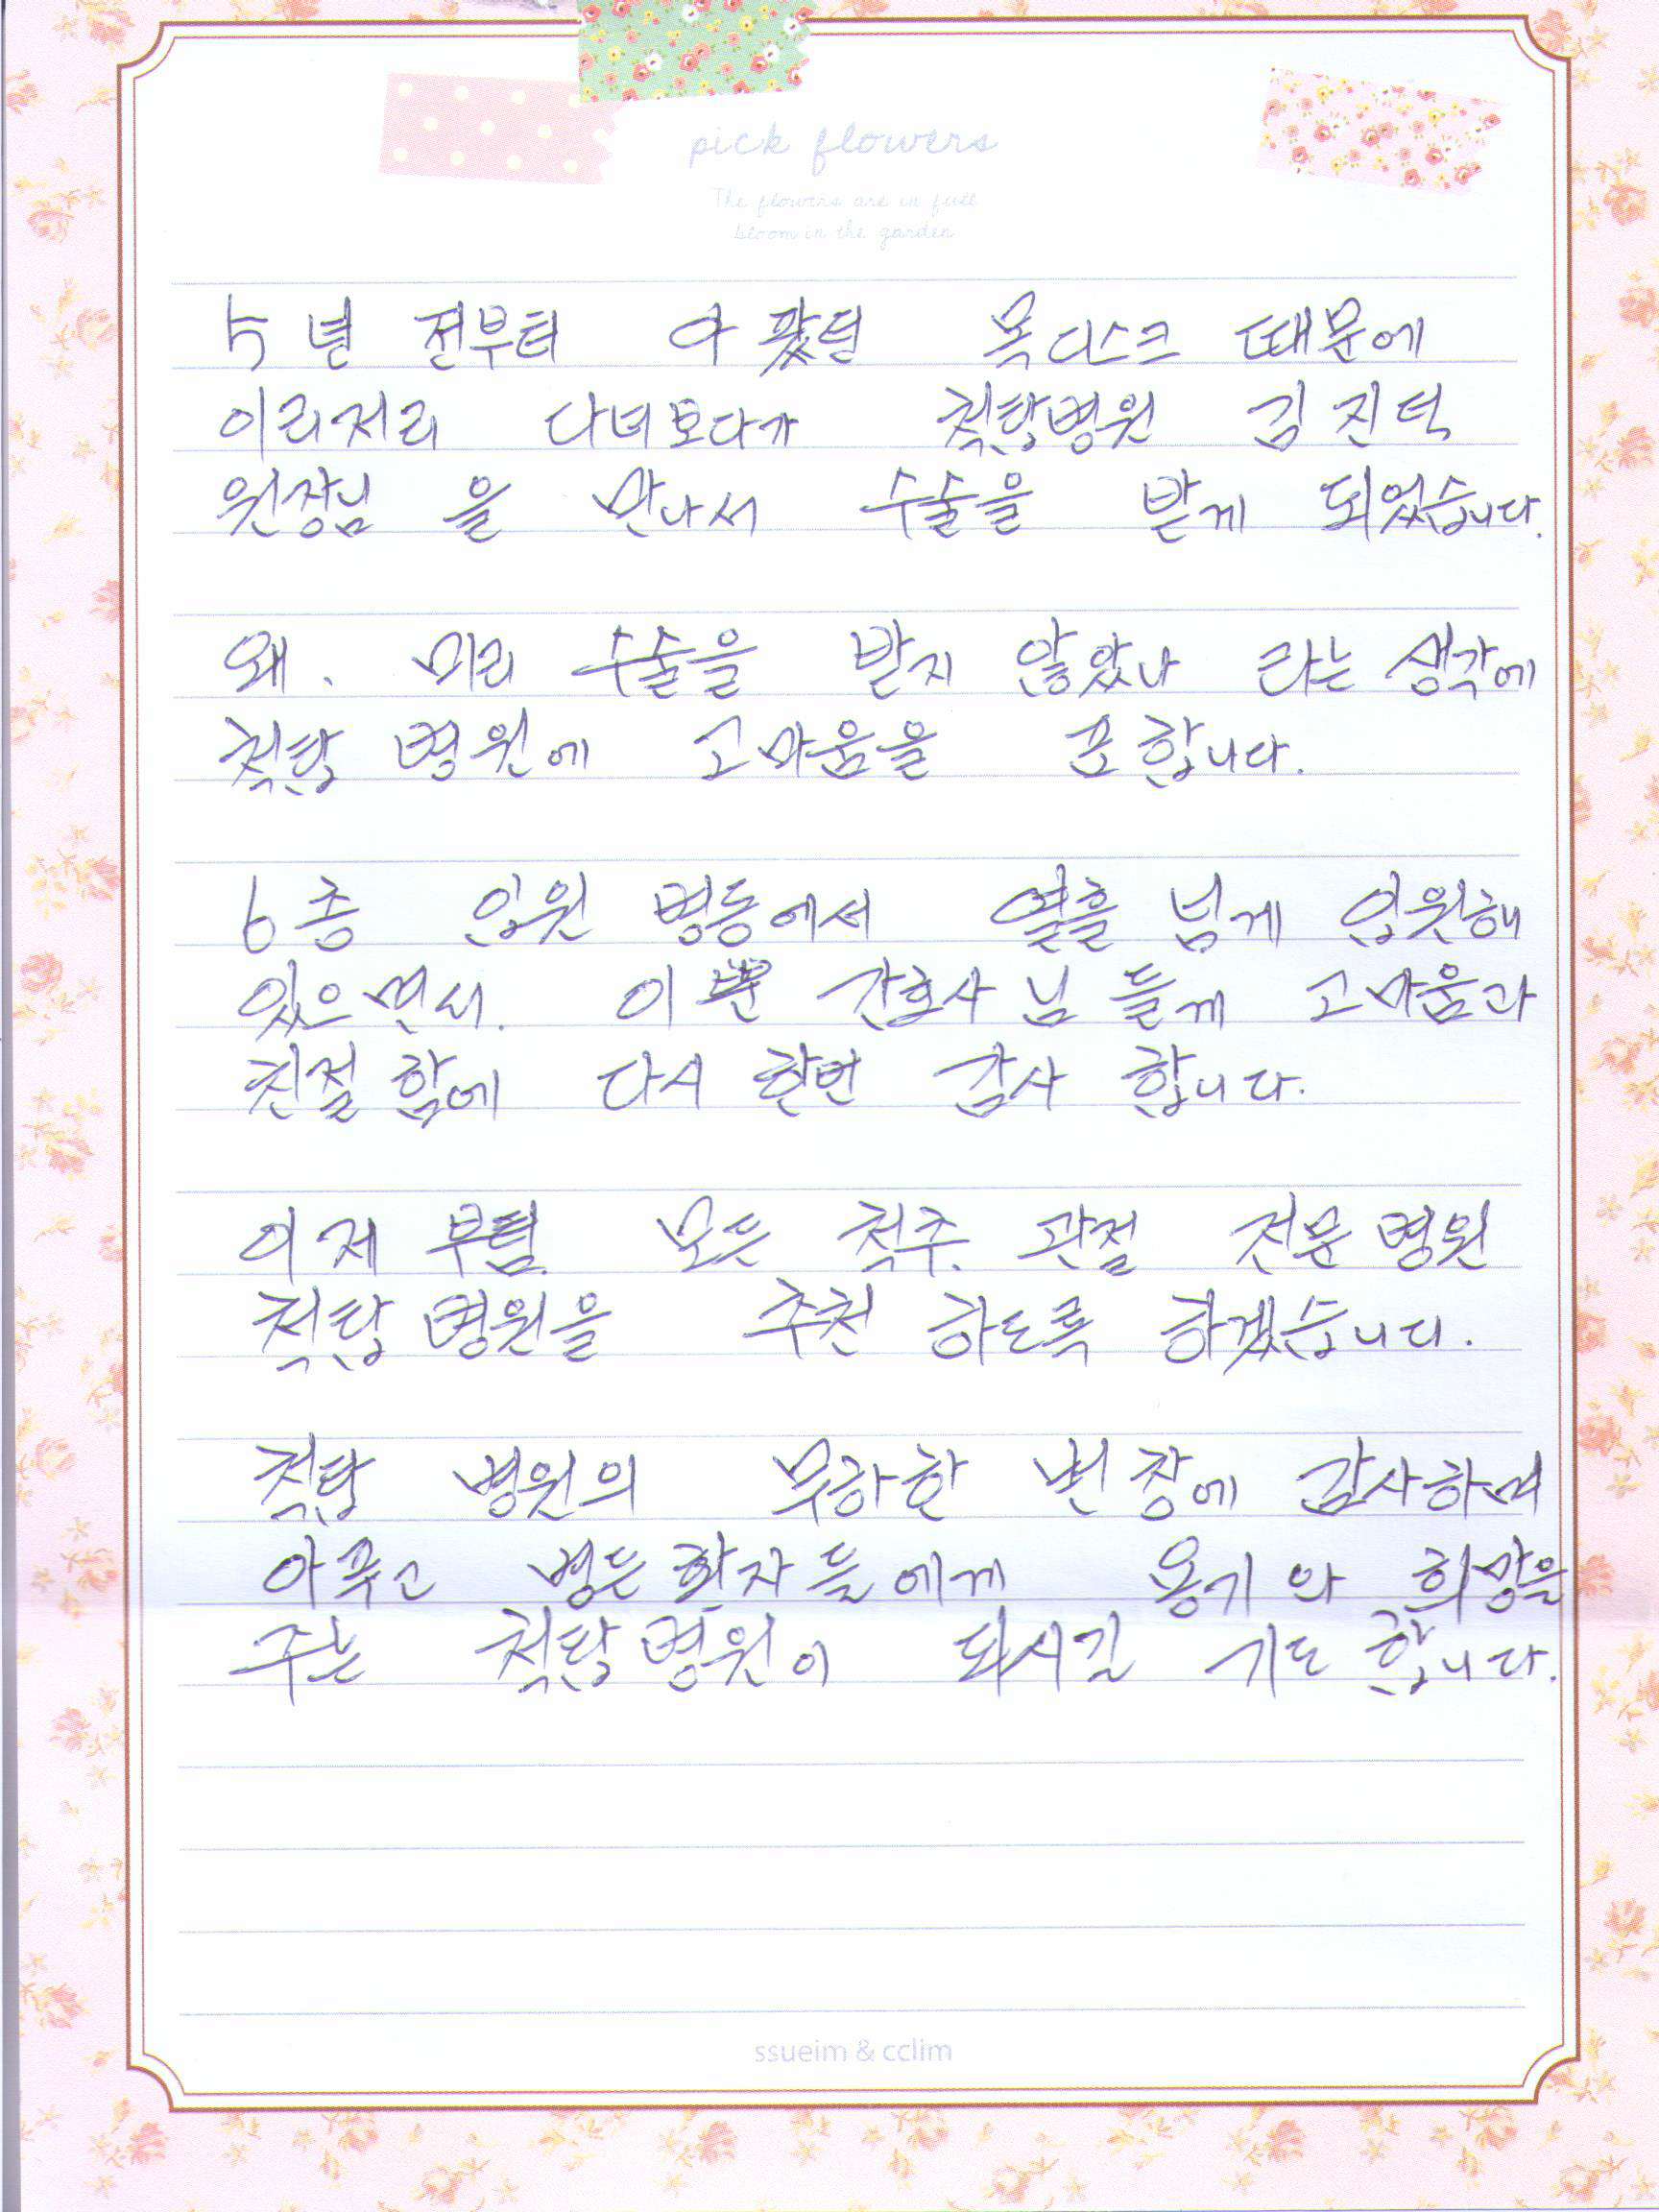 pick flowers
The flowers are in full
bloom in the garden
5년 전부터 아팠던 목디스크 때문에
이리저리 다녀보다가 척탑병원 김진덕
원장님 을 만나서 수술을 받게 되었습니다.
왜. 미리 수술을 받지 않았나 라는 생각에
척탑 병원에 고마움을 표합니다.
6층 입원 병동에서 열흘 넘게 입원해
있으면서. 이쁜 간호사님들께 고마움과
친절함에 다시 한번 감사 합니다.
이제 부텀. 모든 척추. 관절 전문병원
척탑병원을 추천 하도록 하겠습니다.
척탑 병원의 무하한 번창에 감사하며
아푸고 병든 환자들에게 용기와 희망을
주는 척탑병원이 되시길 기도합니다.
ssueim & cclim